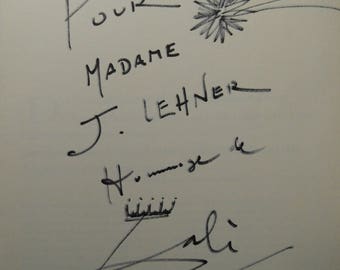 Pour
Madame
J. Lehner
Hommage de
Dali